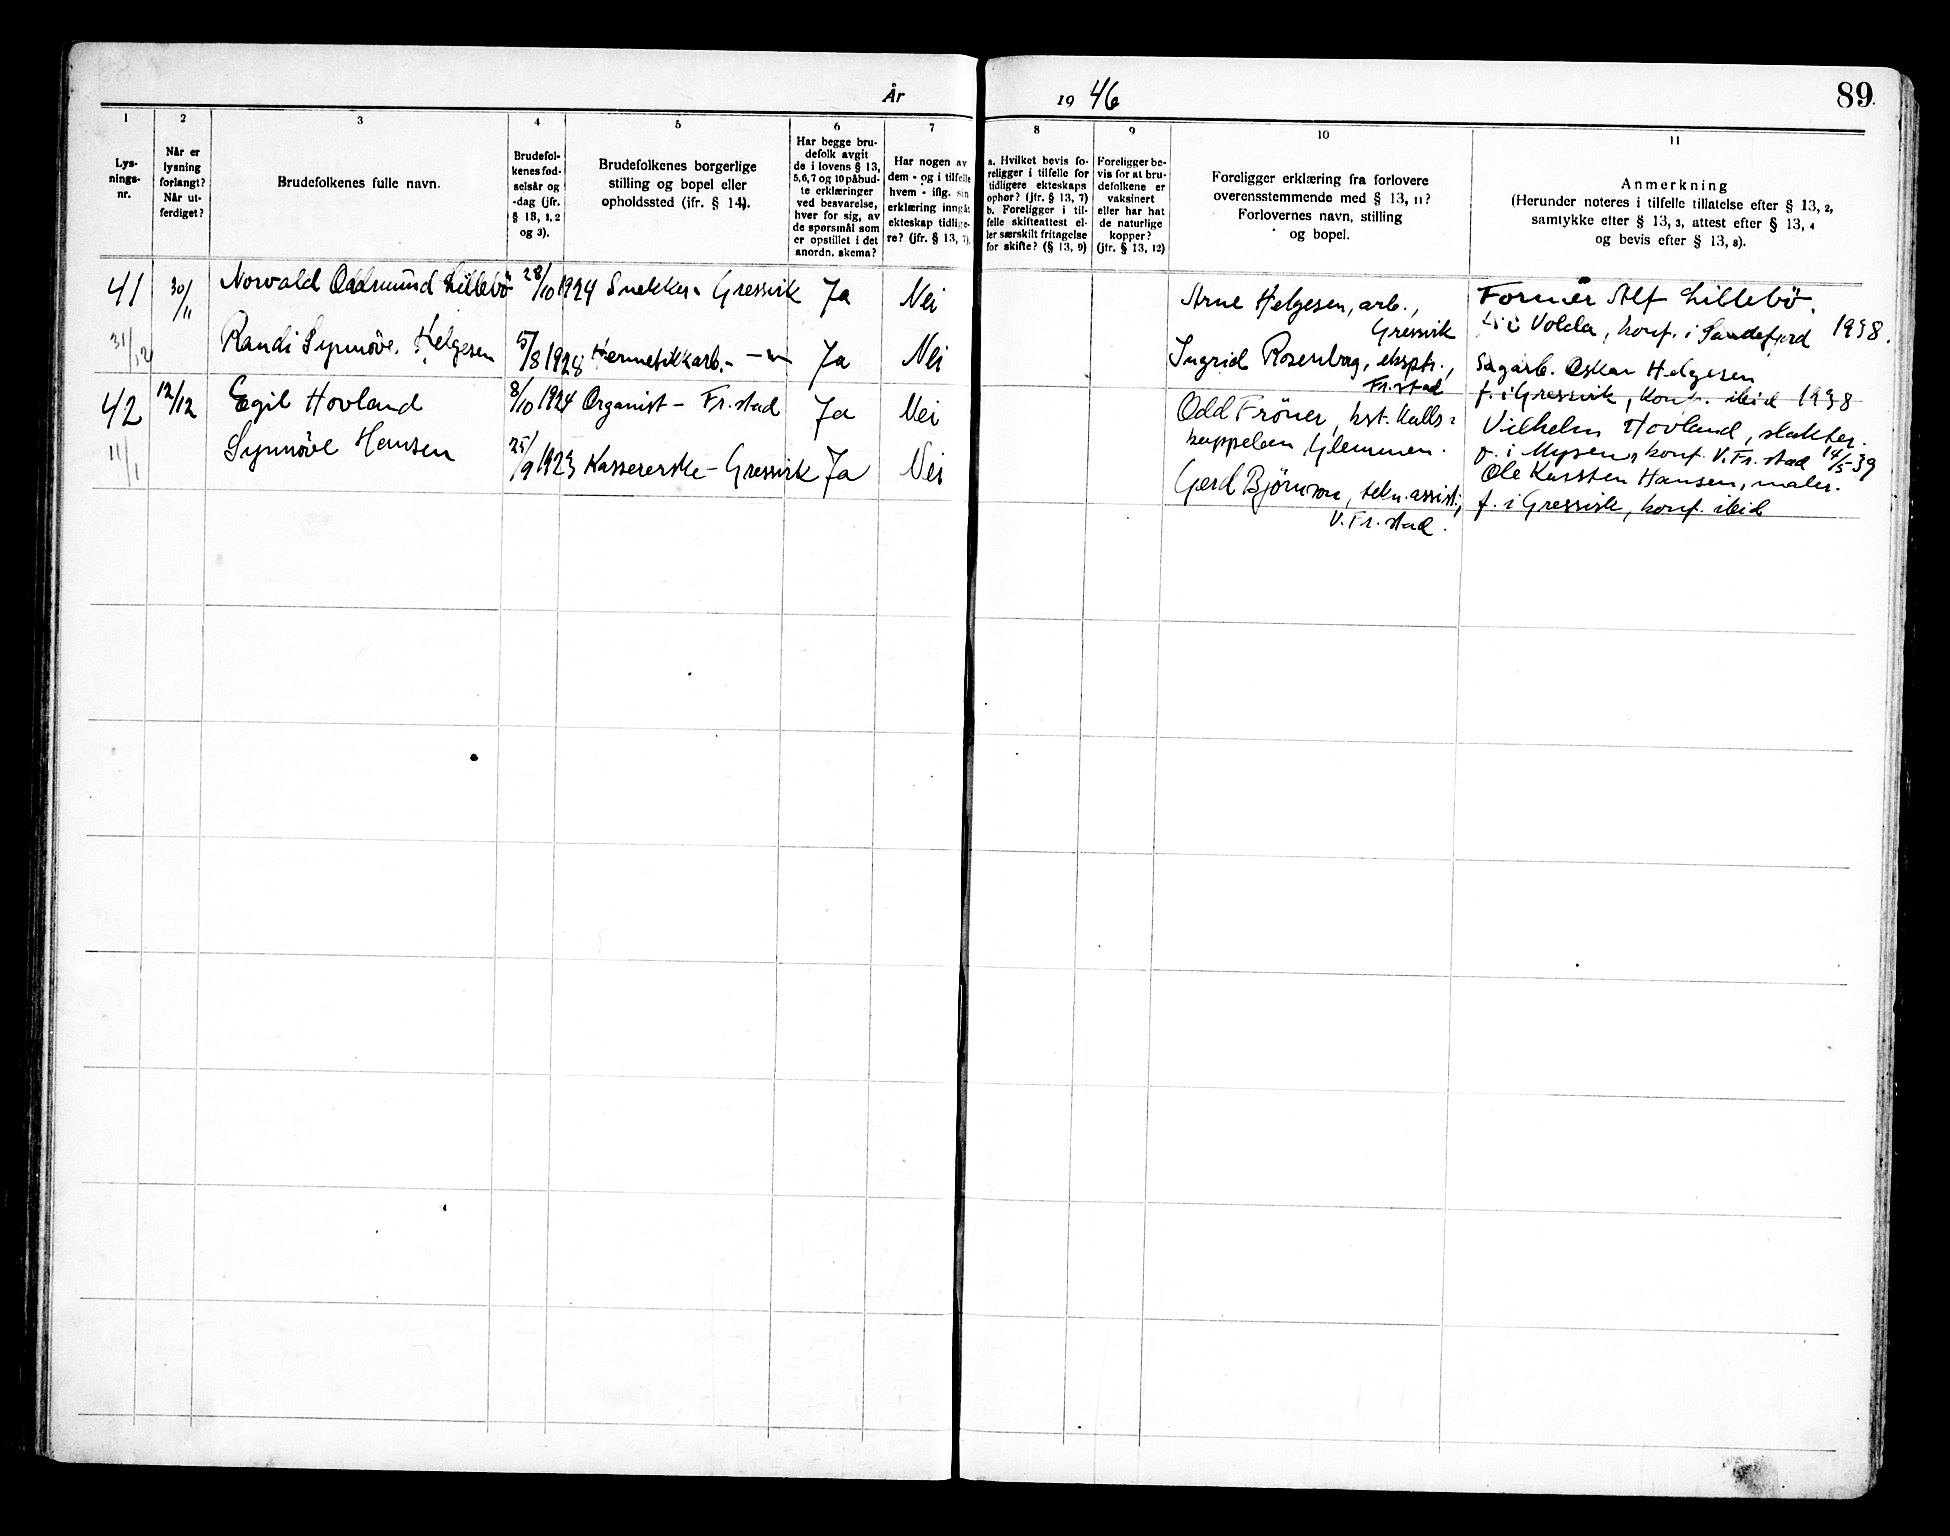 År 1946
89.
1 2 3 4 5 6 7 8 9 10 11
Lys-
nings-
nr.
Når er
lysning
forlangt?
Når ut-
ferdiget?
Brudefolkenes fulle navn.
Brudefol-
kenes fød-
selsår og
-dag (jfr.
§ 13, 1, 2
og 3).
Brudefolkenes borgerlige
stilling og bopel eller
opholdssted (ifr. § 14).
Har begge bru-
defolk avgit
de i lovens § 13,
5,6,7 og 10 påbud-
te erklæringer
ved besvarelse,
hver for sig, av
de spørsmål som
er opstillet i det
anordn. skema?
Har nogen av
dem - og i tilfelle
hvem - iflg. sin
erklæring inngåt
ekteskap tidlige-
re? (jfr. § 13, 7).
a. Hvilket bevis fo-
religger i tilfelle for
tidligere ekteskaps
ophør? (jfr. § 13, 7)
b. Foreligger i til-
felle skifteattest el-
ler særskilt fritagelse
for skifte? (§ 13, 9)
Foreligger be-
vis for at bru-
defolkene er
vaksinert
eller har hat
de naturlige
kopper?
(jfr. § 13, 12)
Foreligger erklæring fra forlovere
overensstemmende med § 13, 11?
Forlovernes navn, stilling
og bopel.
Anmerkning
(Herunder noteres i tilfelle tillatelse efter § 13, 2,
samtykke efter § 13, 3, attest efter § 13, 4
og bevis efter § 13, 8).
41 30/11 Norvald Oddmund Lillebö 28/10 1924 Snekker - Gressvik Ja Nei
Arne Helgesen, arb.,
Gressvik
Former Alf Lillebö.
i Volda, konf. i Sandefjord 1938.
31/12 Randi Synnöve Helgesen 5/8 1928 Hermetikkarb. - — Ja Nei
Ingrid Rosenborg, eksptr.,
Fr.stad
Sagarb. Oskar Helgesen
f. i Gressvik, konf. ibid 1938
42 12/12 Egil Hovland 8/10 1924 Organist - Fr.stad Ja Nei
Odd Fröner,
kappelen, Glemmen.
Vilhelm Hovland, slakter.
f. i Mysen, konf. V. Fr.stad 14/5 39
11/1 Synnöve Hansen 25/9 1923 Kassererske - Gressvik Ja Nei
Gerd Björnson, tekn. assist.,
V. Fr.stad.
Ole Karsten Hansen, maler.
f. i Gressvik, konf. ibid